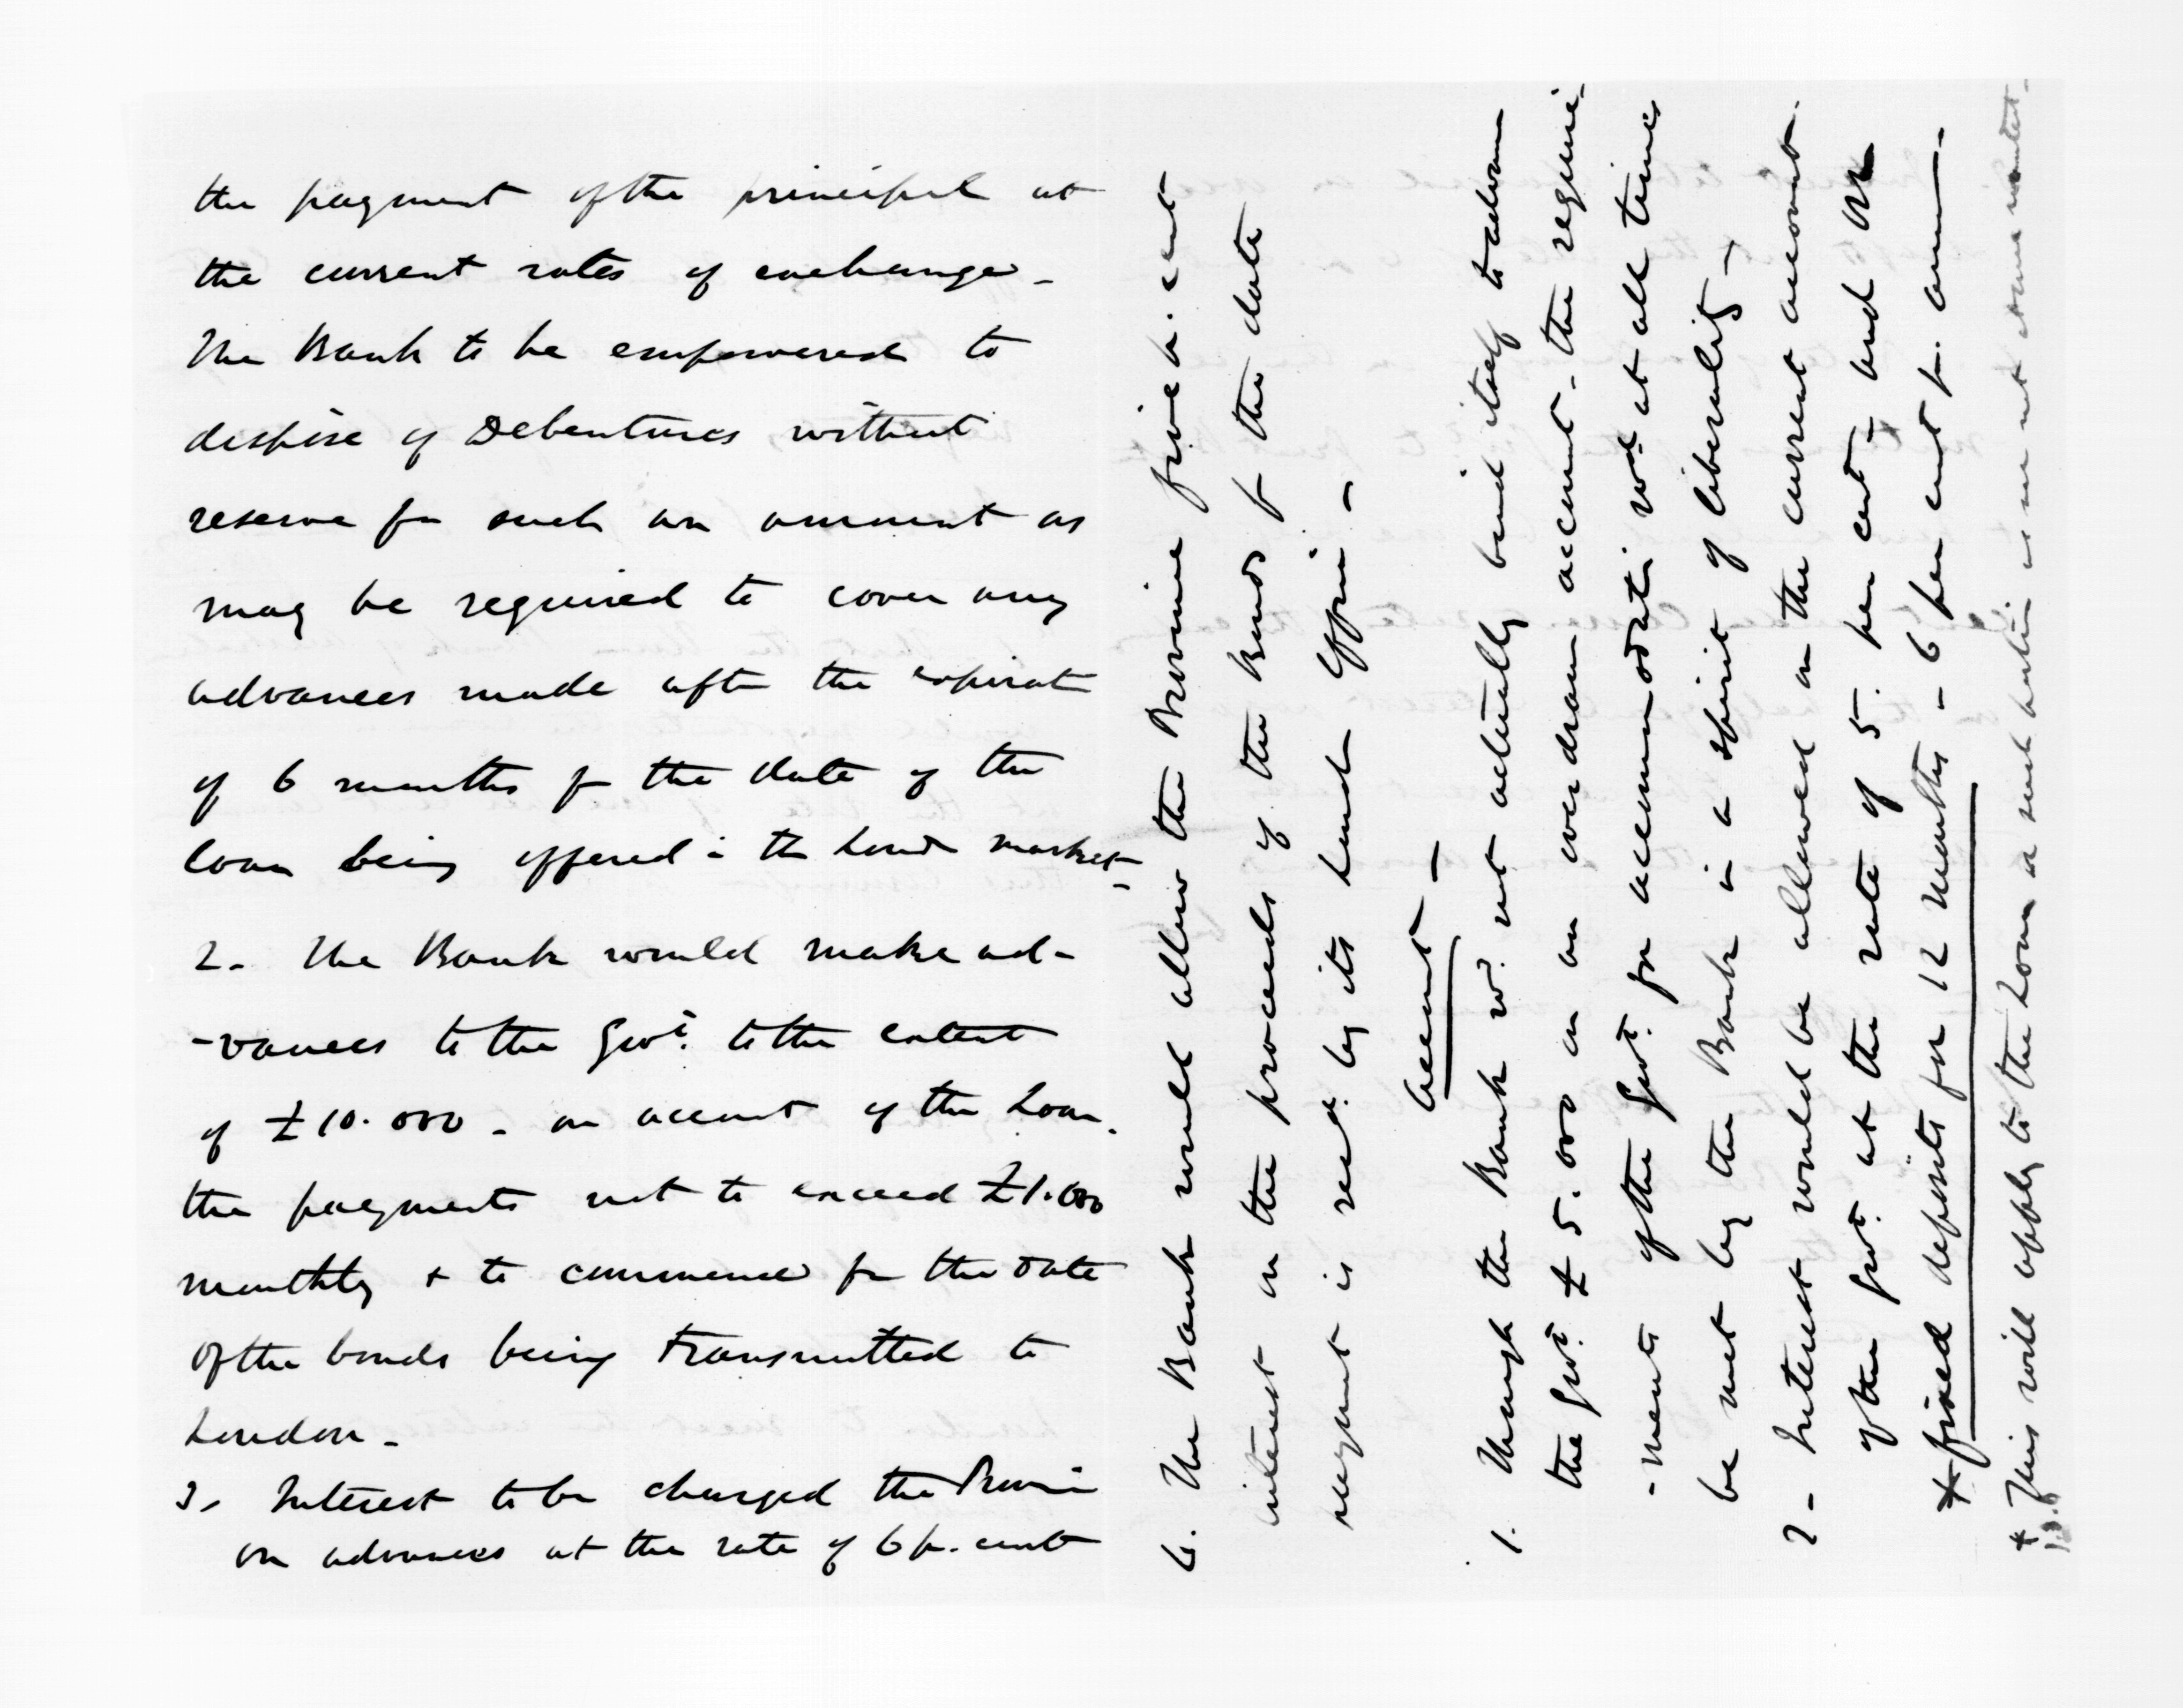 the payment of the principal at
the current rates of exchange -
The Bank to be empowered to
dispose of Debentures without
reserve for such an amount as
may be required to cover any
advances made after the expirat
of 6 months fr the date of the
loan being offered in the Lond market -
2. The Bank would make ad-
-vances to the Govt. to the extent
of £10.000 - on account of the Loan.
the payments not to exceed £1.000
monthly & to commence fr the date
of the bonds being transmitted to
London -
3. Interest to be charged the Provin
on advances at the rate of 6 p. cent
4. The Bank would allow the Province five p. cent
interest on the proceeds of the Bonds fr the date
is recd. by its Lond Office -
Account -
1. Though the Bank wd. not actually bind itself to advan
the Govt. £5.000 on an overdrawn account - the require-
-ments of the Govt. for accommodatn. wod. at all times
be met by the Bank in a spirit of liberality -
2 - Interest would be allowed on the current account.
of the Govt. at the rate of 5. per cent - and on
* fixed deposits for 12 months - 6 per cent p. ann -
* This will apply to the Loan if such portion is not